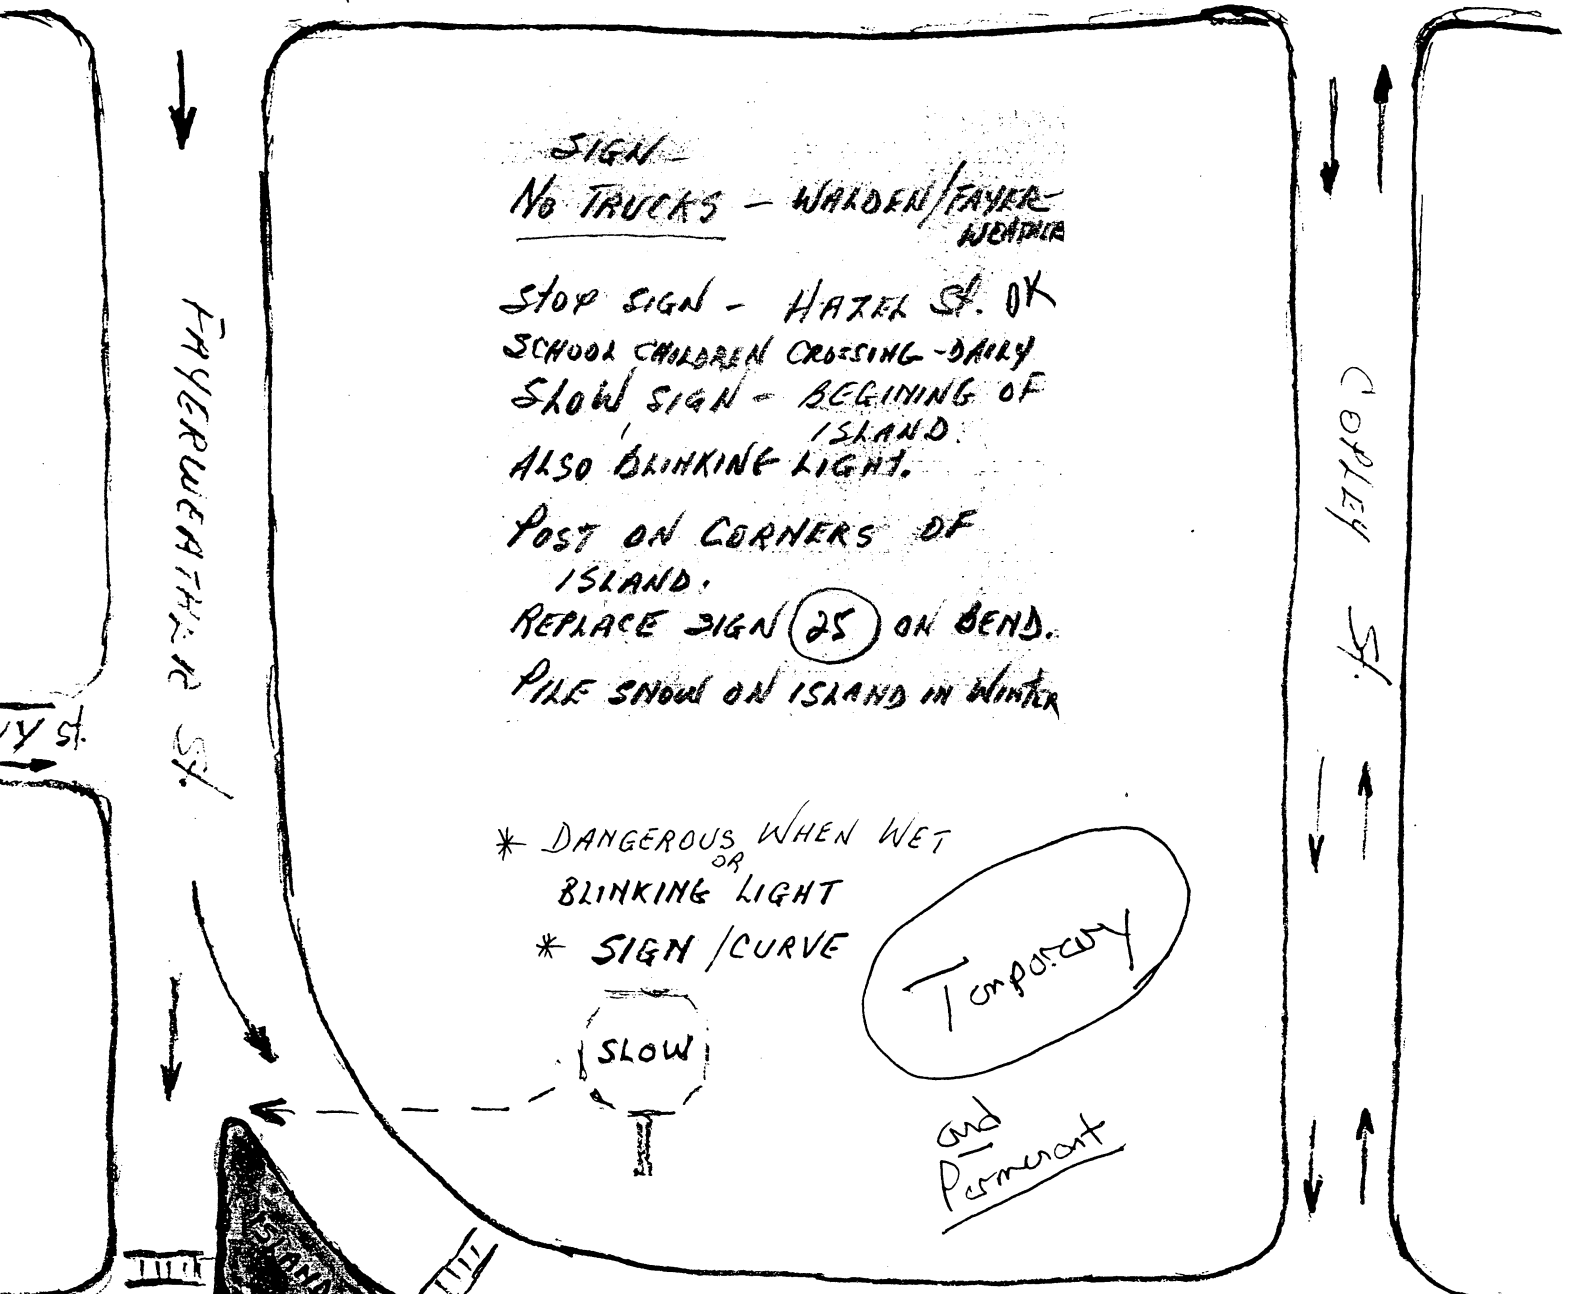 SIGN -
NO TRUCKS - WALDEN/FAYER-
WEATHER
STOP SIGN - HAZEL St. OK
SCHOOL CHILDREN CROSSING - DAILY
SLOW SIGN - BEGINING OF
ISLAND.
ALSO BLINKING LIGHT.
POST ON CORNERS OF
ISLAND.
REPLACE SIGN 25 ON BEND.
PILE SNOW ON ISLAND IN WINTER
* DANGEROUS WHEN WET
OR
BLINKING LIGHT
* SIGN / CURVE
SLOW
Temporary
and
Permenant
FAYERWEATHER St.
COPLEY St.
St.
ISLAND